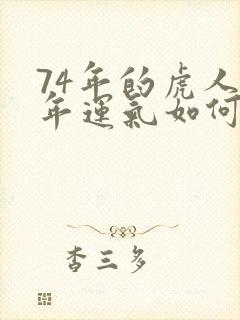 74年的虎人
年運氣如何
杏三多